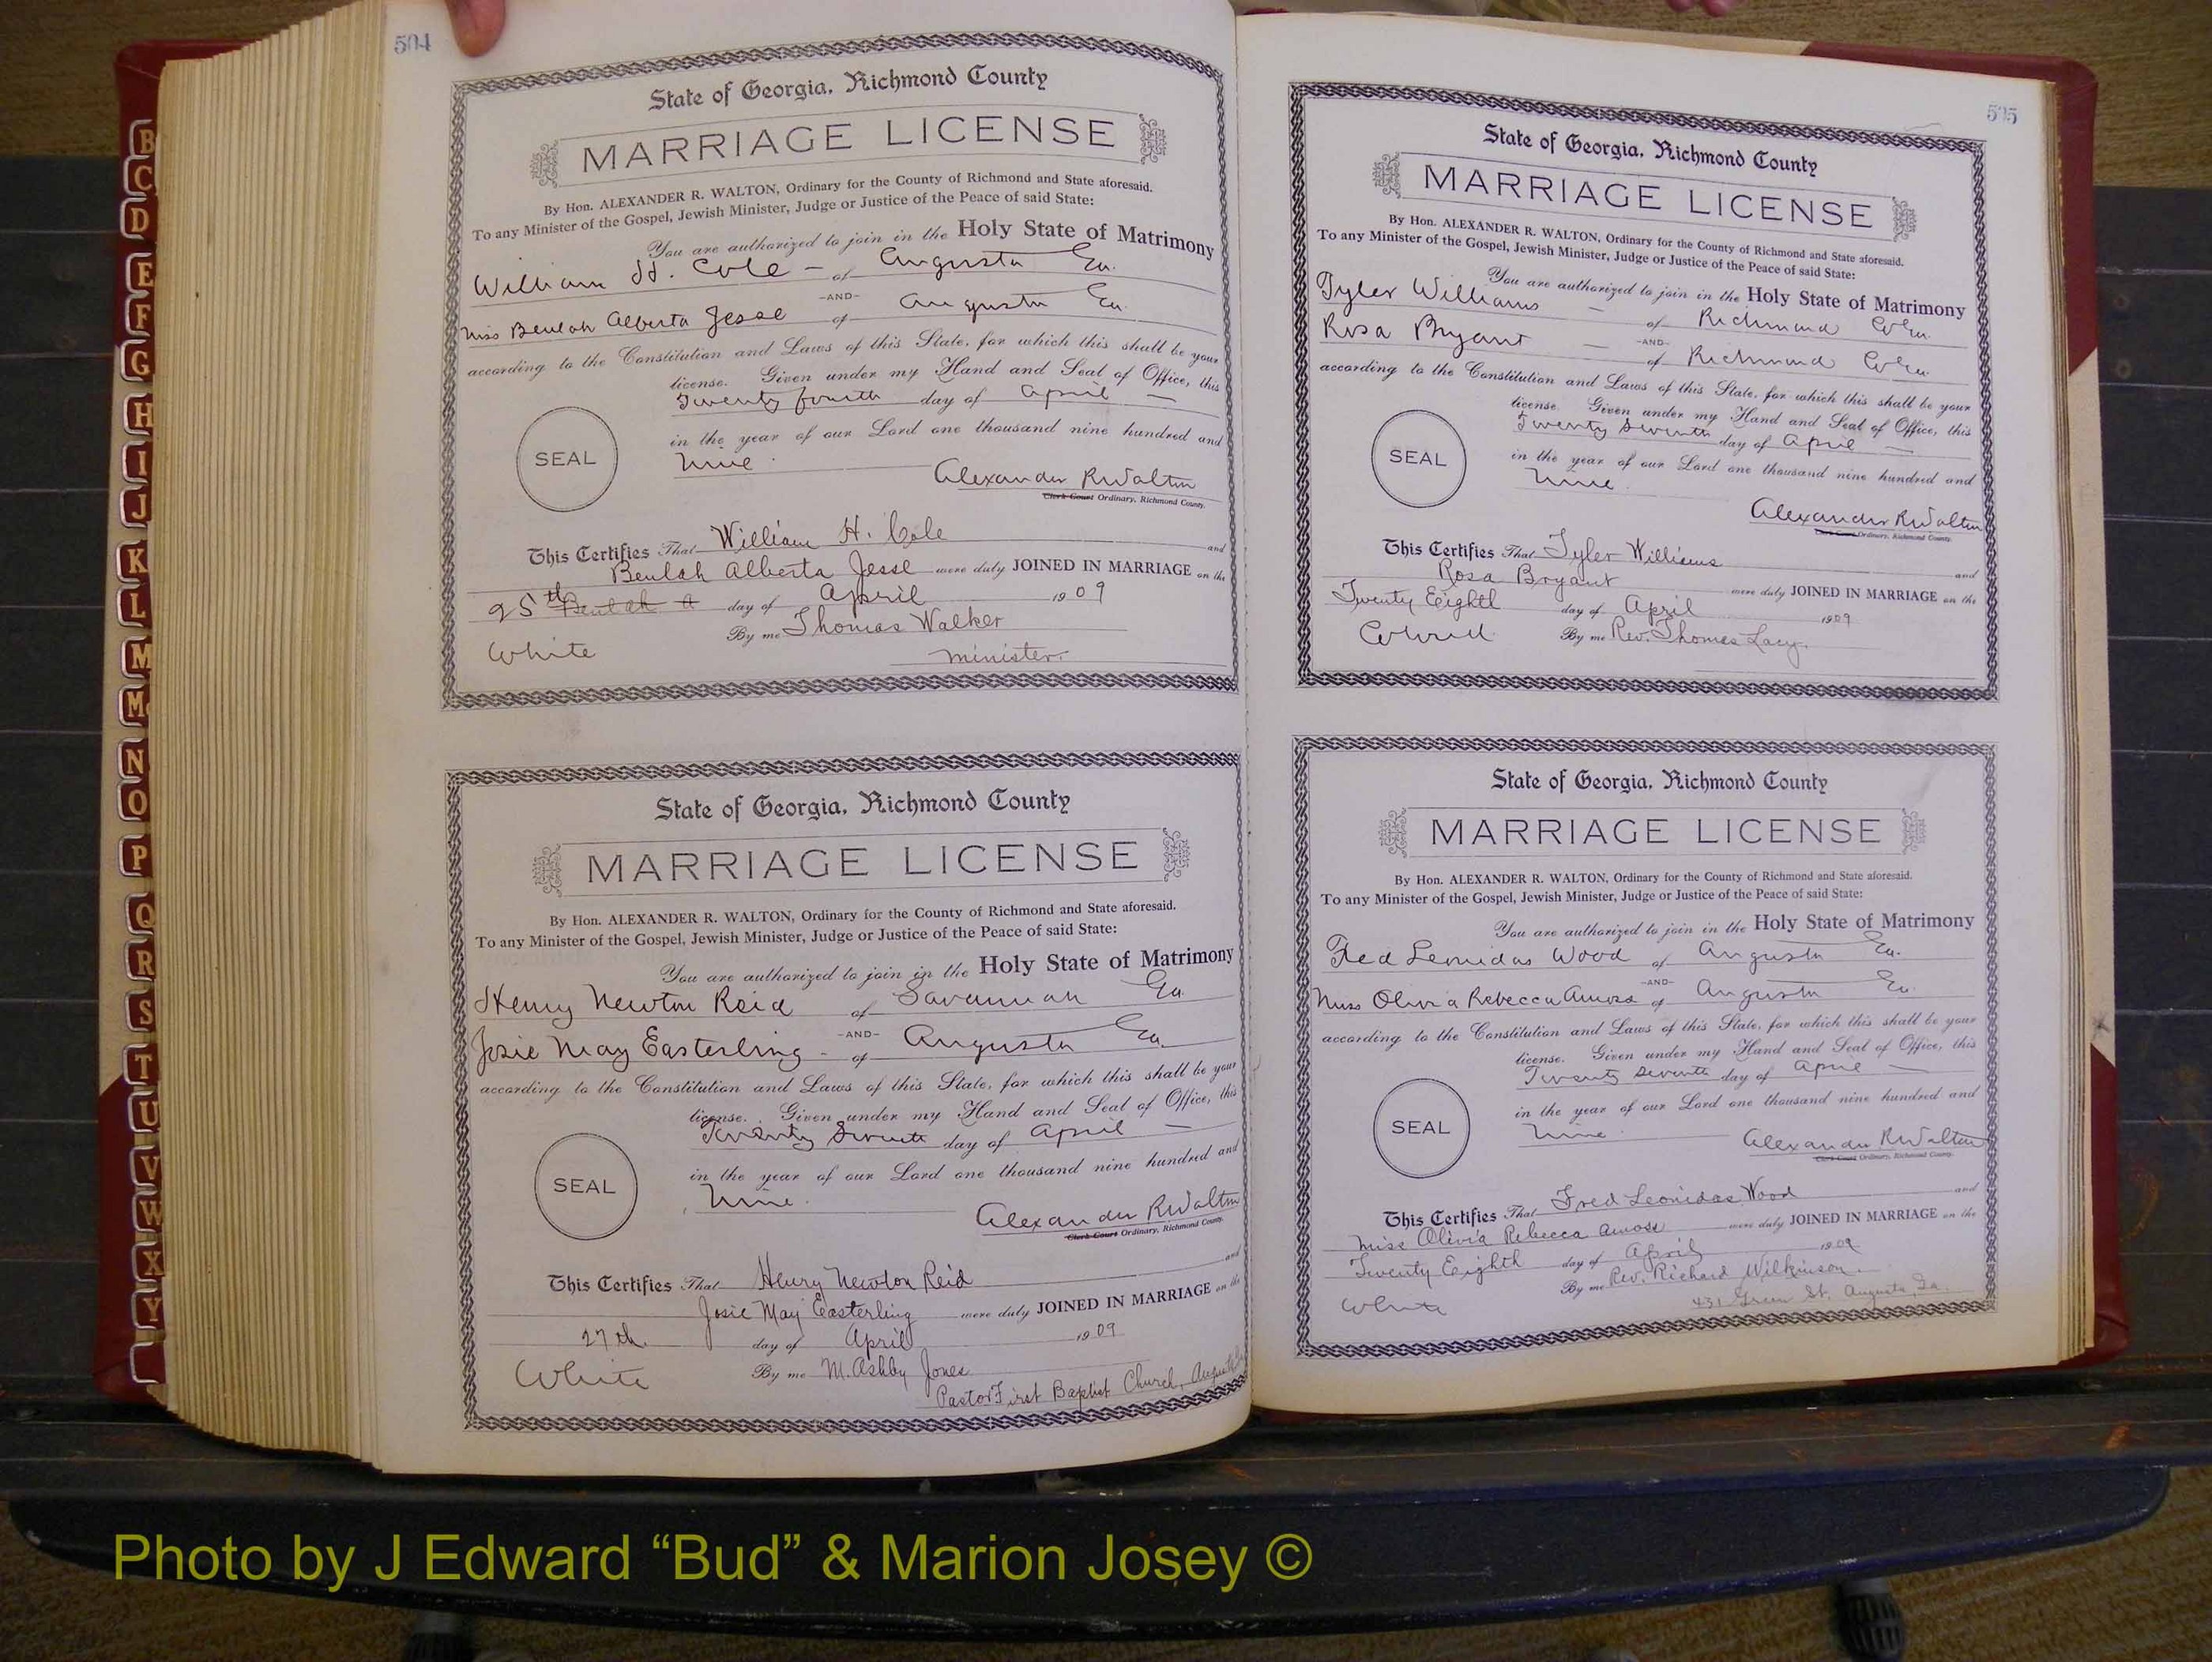 504
State of Georgia, Richmond County
MARRIAGE LICENSE
By Hon. ALEXANDER R. WALTON, Ordinary for the County of Richmond and State aforesaid.
To any Minister of the Gospel, Jewish Minister, Judge or Justice of the Peace of said State:
You are authorized to join in the Holy State of Matrimony
William H. Cole - of Augusta Ga.
-AND-
Miss Beulah Alberta Jesse of Augusta Ga.
according to the Constitution and Laws of this State, for which this shall be your
license. Given under my Hand and Seal of Office, this
Twenty fourth day of April
in the year of our Lord one thousand nine hundred and
SEAL
Nine.
Alexander R Walton
Clerk Court Ordinary, Richmond County.
This Certifies That William H. Cole and
Beulah Alberta Jesse were duly JOINED IN MARRIAGE on the
25th Beulah A day of April 1909
By me Thomas Walker
White minister.
State of Georgia, Richmond County
MARRIAGE LICENSE
By Hon. ALEXANDER R. WALTON, Ordinary for the County of Richmond and State aforesaid.
To any Minister of the Gospel, Jewish Minister, Judge or Justice of the Peace of said State:
You are authorized to join in the Holy State of Matrimony
Henry Newton Reid of Savannah Ga.
-AND-
Josie May Easterling - of Augusta Ga.
according to the Constitution and Laws of this State, for which this shall be your
license. Given under my Hand and Seal of Office, this
Twenty Seventh day of April
in the year of our Lord one thousand nine hundred and
SEAL
Nine.
Alexander R Walton
Clerk Court Ordinary, Richmond County.
This Certifies That Henry Newton Reid and
Josie May Easterling were duly JOINED IN MARRIAGE on the
27th. day of April 1909
White By me M. Ashby Jones
Pastor First Baptist Church, Augusta Ga
505
State of Georgia, Richmond County
MARRIAGE LICENSE
By Hon. ALEXANDER R. WALTON, Ordinary for the County of Richmond and State aforesaid.
To any Minister of the Gospel, Jewish Minister, Judge or Justice of the Peace of said State:
You are authorized to join in the Holy State of Matrimony
Tyler Williams - of Richmond Co Ga.
-AND-
Rosa Bryant - of Richmond Co Ga
according to the Constitution and Laws of this State, for which this shall be your
license. Given under my Hand and Seal of Office, this
Twenty Seventh day of April
in the year of our Lord one thousand nine hundred and
SEAL
Nine.
Alexander R Walton
Clerk Court Ordinary, Richmond County.
This Certifies That Tyler Williams and
Rosa Bryant were duly JOINED IN MARRIAGE on the
Twenty Eighth day of April 1909
Colored By me Rev. Thomas Lacy.
State of Georgia, Richmond County
MARRIAGE LICENSE
By Hon. ALEXANDER R. WALTON, Ordinary for the County of Richmond and State aforesaid.
To any Minister of the Gospel, Jewish Minister, Judge or Justice of the Peace of said State:
You are authorized to join in the Holy State of Matrimony
Fred Leonidas Wood of Augusta Ga.
-AND-
Miss Olivia Rebecca Amoss of Augusta Ga.
according to the Constitution and Laws of this State, for which this shall be your
license. Given under my Hand and Seal of Office, this
Twenty Seventh day of April
in the year of our Lord one thousand nine hundred and
SEAL
Nine.
Alexander R Walton
Clerk Court Ordinary, Richmond County.
This Certifies That Fred Leonidas Wood and
Miss Olivia Rebecca Amoss were duly JOINED IN MARRIAGE on the
Twenty Eighth day of April 1909
By me Rev. Richard Wilkinson.
White 431 Green St. Augusta, Ga.
B
C
D
E
F
G
H
I
J
K
L
M
Mc
N
O
P
Q
R
S
T
U
V
W
X
Y
Photo by J Edward “Bud” & Marion Josey ©